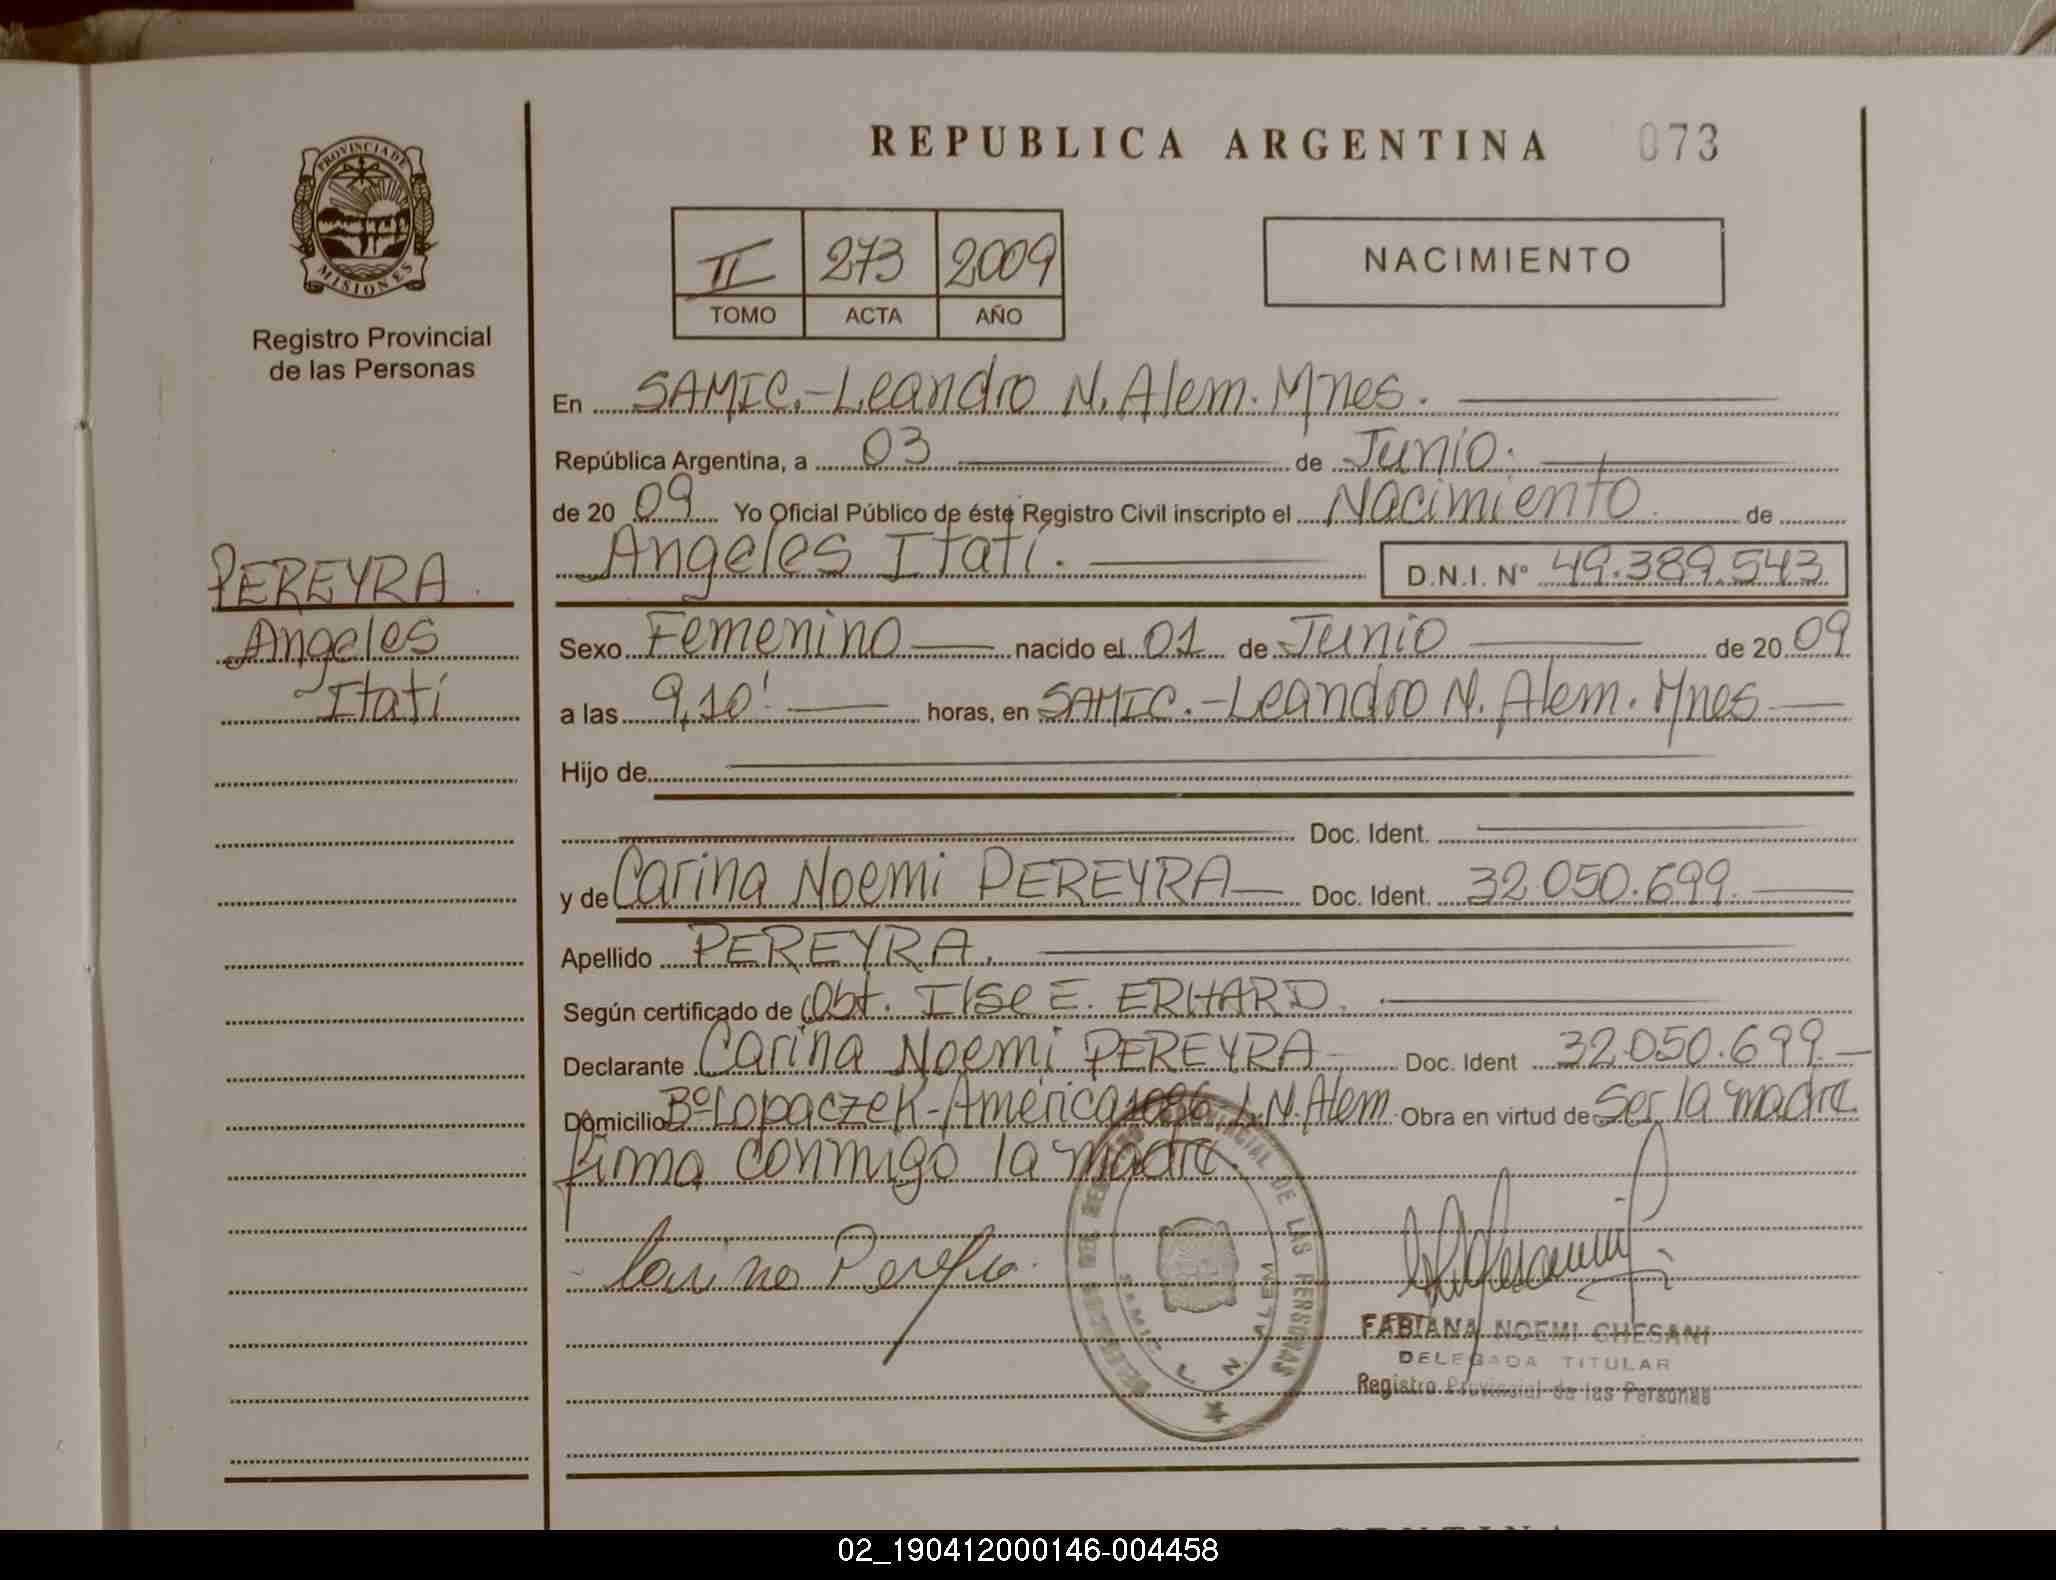 REPUBLICA ARGENTINA 073
PROVINCIA DE
MISIONES
Registro Provincial
de las Personas
II 273 2009
TOMO ACTA AÑO
NACIMIENTO
En SAMIC.-Leandro N. Alem. Mnes.
República Argentina, a 03 de Junio.
de 20 09 Yo Oficial Público de éste Registro Civil inscripto el Nacimiento de
Angeles Itatí. D.N.I. N° 49.389.543
PEREYRA.
Angeles
Itatí
Sexo Femenino nacido el 01 de Junio de 20 09
a las 9,10' horas, en SAMIC.-Leandro N. Alem. Mnes
Hijo de
Doc. Ident.
y de Carina Noemi PEREYRA Doc. Ident. 32.050.699.
Apellido PEREYRA.
Según certificado de Obt. Ilse E. ERHARD.
Declarante Carina Noemi PEREYRA Doc. Ident 32.050.699.
Domicilio Bº Lopaczek-América 1086 L.N.Alem Obra en virtud de Ser la madre
firma conmigo la madre.
Carina Pereyra.
PROVINCIAL DE LAS PERSONAS
SAMIC L. N. ALEM
FABIANA NOEMI CHESANI
DELEGADA TITULAR
Registro Provincial de las Personas
ARGENTINA
02_190412000146-004458